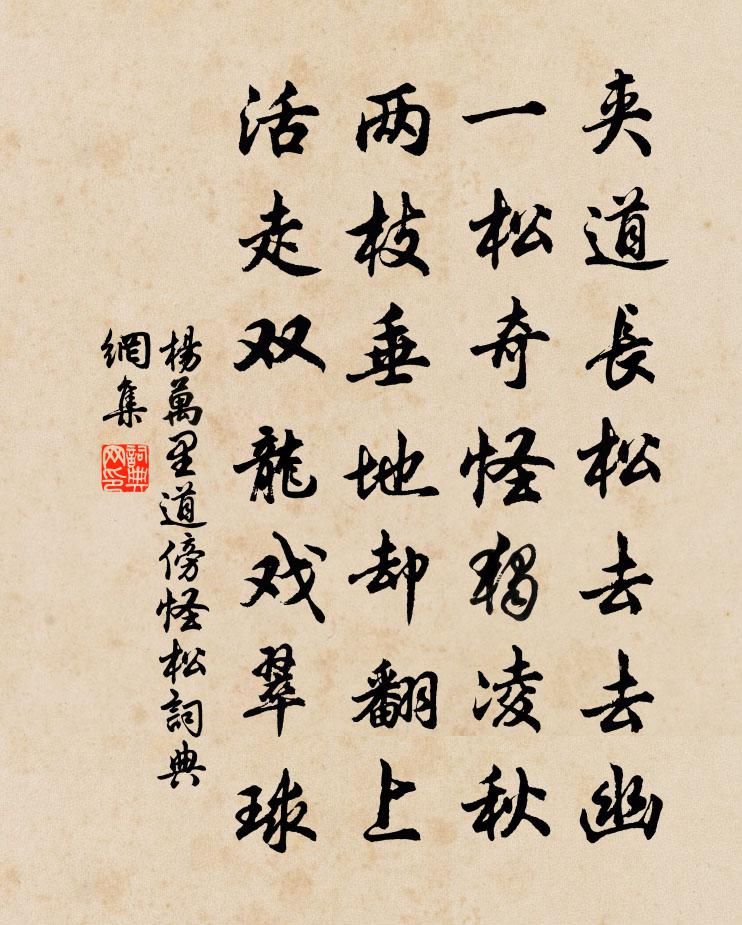 夹道長松去去幽
一松奇怪獨凌秋
两枝垂地却翻上
活走双龍戏翠球
楊萬里道傍怪松詞典
網集
詞典
网印